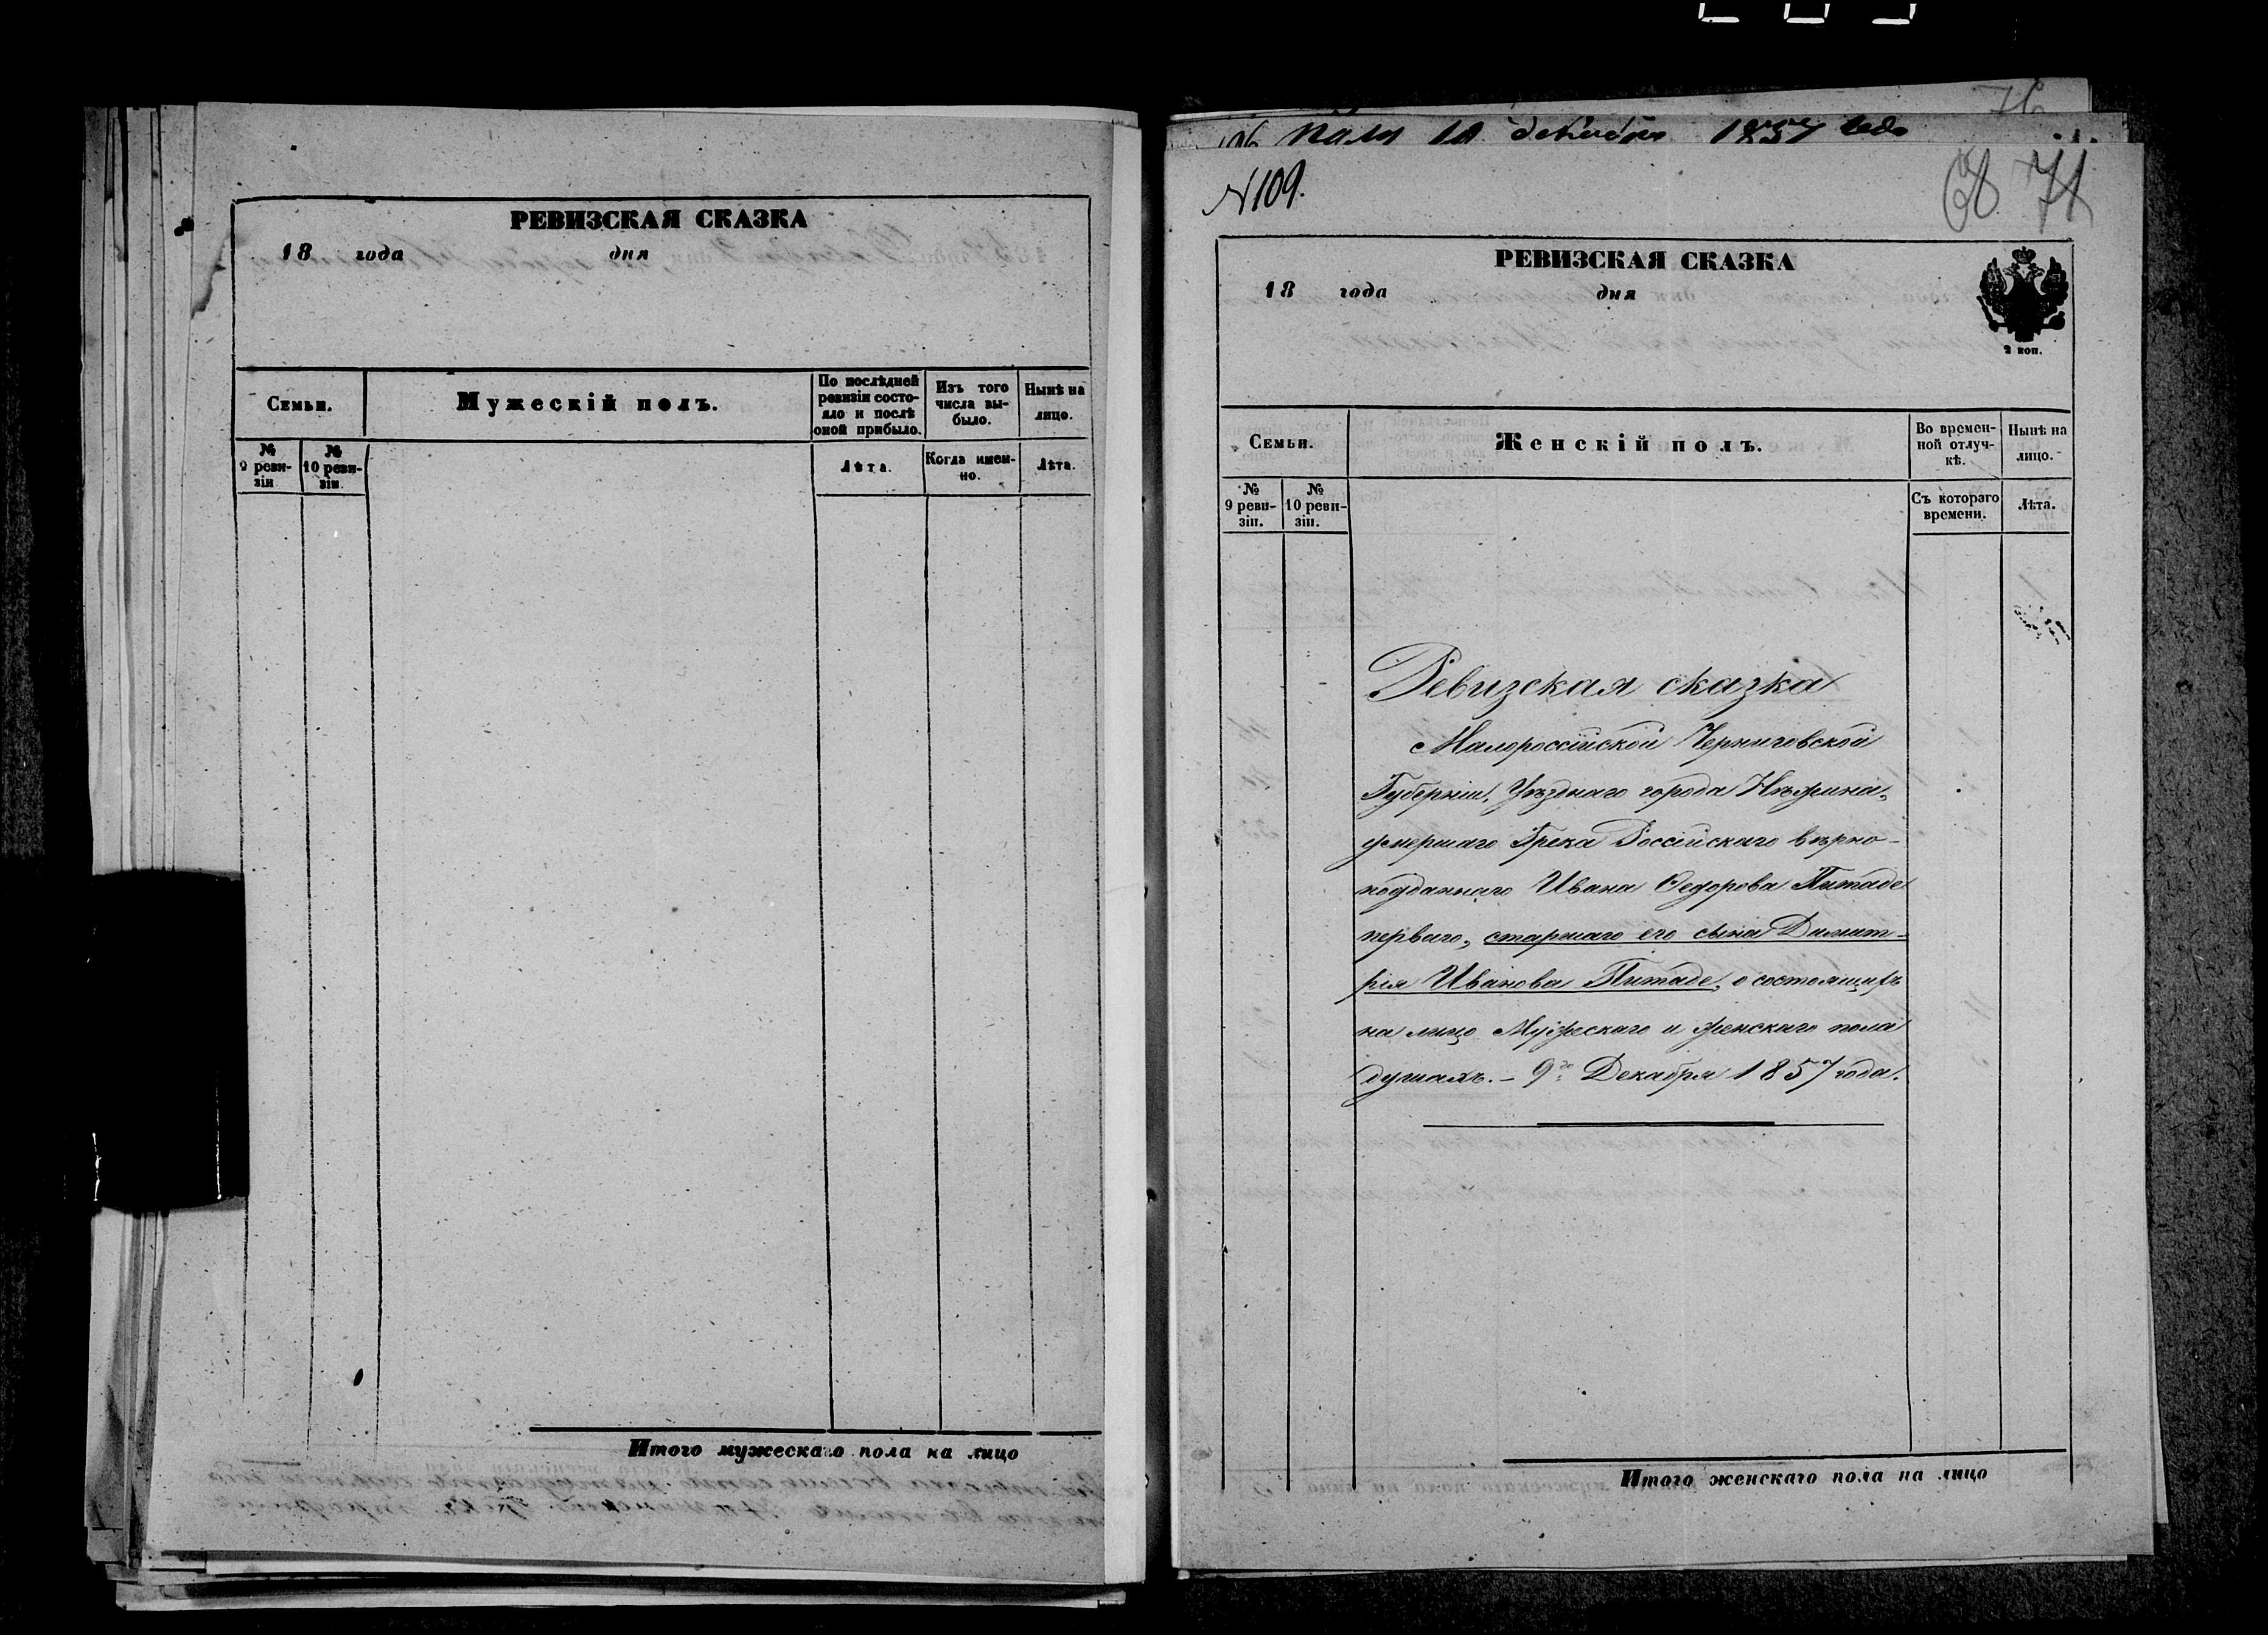 РЕВИЗСКАЯ СКАЗКА
18 года дня
Семьи.
Мужескій полъ.
По послѣдней ревизіи состо-
яло и послѣ
оной прибыло.
Изъ того
числа вы-
было.
Нынѣ на
лицо.
№
9 реви-
зіи
№
10 реви-
зіи.
Лѣта.
Когда имен-
но.
Лѣта.
Итого мужескаго пола на лицо
10 декабря 1857
N 109.
68 71
РЕВИЗСКАЯ СКАЗКА
18 года дня
2 коп.
Семьи.
Женскій полъ.
Во времен-
ной отлуч-
кѣ.
Нынѣ на
лицо.
№
9 реви-
зіи.
№
10 реви-
зіи.
Съ котораго
времени.
Лѣта.
Ревизская сказка
Малороссійской Черниговской
Губерніи, Уѣзднаго города Нѣжина,
умершаго Грека Россійскаго вѣрно-
подданнаго Ивана Ѳедорова Питаде
перваго, старшаго его сына Димит-
рія Иванова Питаде, о состоящихъ
на лицо Мужескаго и женскаго пола
душахъ. – 9го Декабря 1857 года.
Итого женскаго пола на лицо